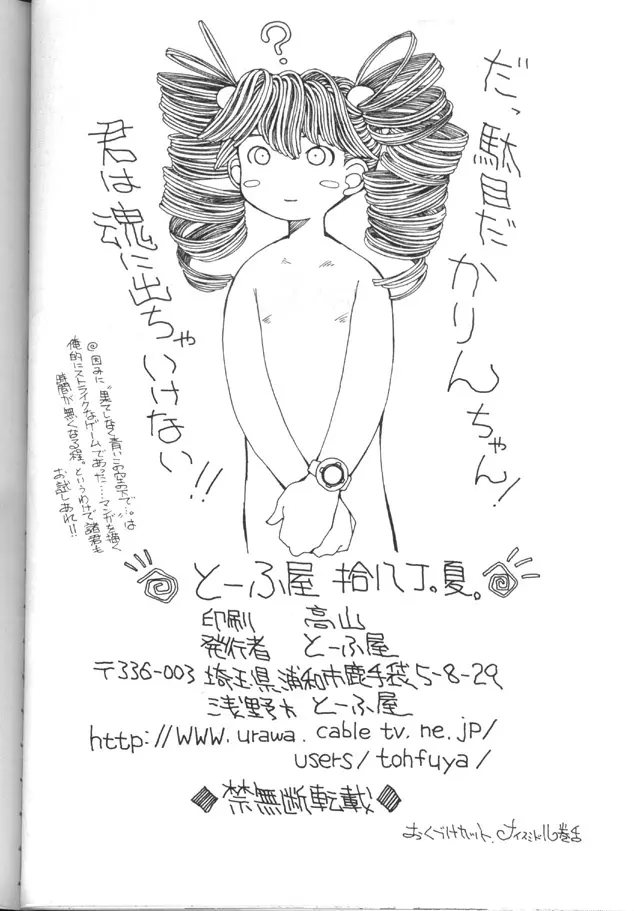 ?
だっ駄目だかりんちゃん!
君は魂に出ちゃいけない!!
@因みに“果てしなく青いこの空の下で…。は
俺的にストライクなゲームであった……マンガを描く
時間が無くなる程。というわけで諸君も
お試しあれ!!
とーふ屋 拾八丁。夏。
印刷 高山
発行者 とーふ屋
〒336-003 埼玉県浦和市鹿手袋5-8-29
浅野方 とーふ屋
http://www.urawa.cable tv.ne.jp/
users/tohfuya/
◆禁無断転載◆
おくづけカット、ナイスミドル巻舌